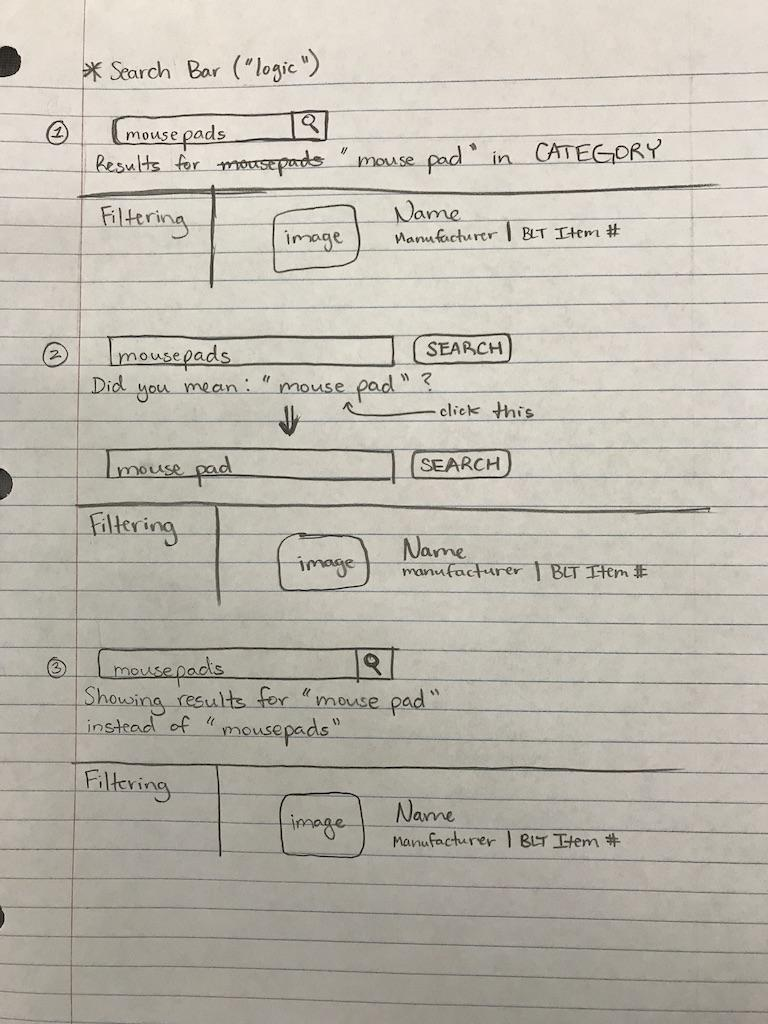 * Search Bar ("logic")
① mousepads
Results for mousepads "mouse pad" in CATEGORY
Filtering image Name
Manufacturer | BLT Item #
② mousepads SEARCH
Did you mean: "mouse pad"?
click this
mouse pad SEARCH
Filtering image Name
manufacturer | BLT Item #
③ mousepads
Showing results for "mouse pad"
instead of "mousepads"
Filtering image Name
Manufacturer | BLT Item #